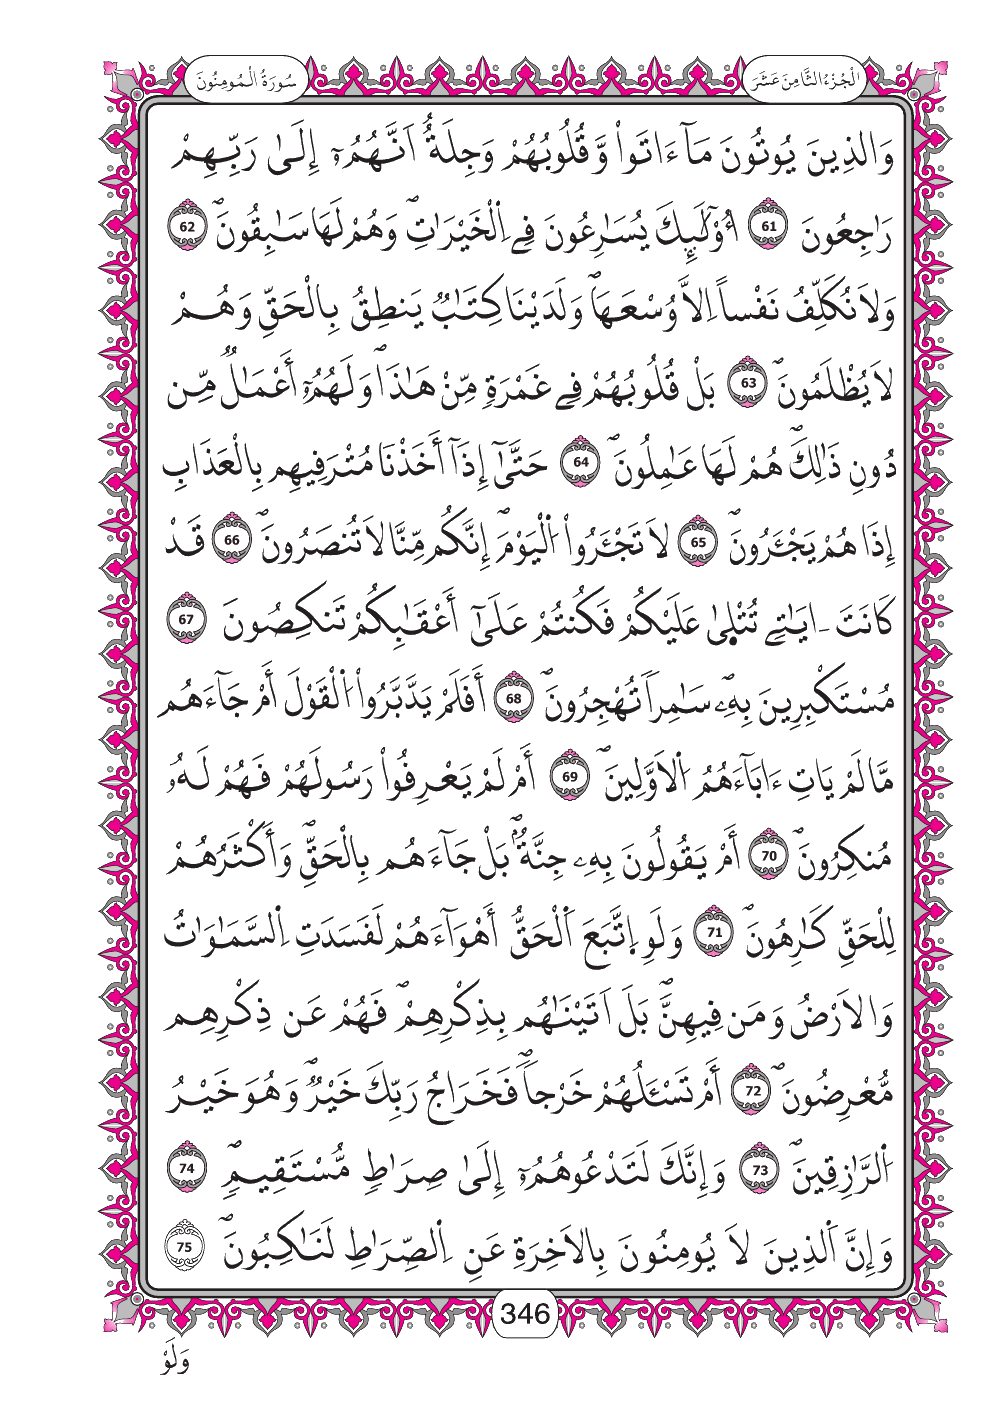 سُورَةُ الْمُومِنُونَ
الْجُزْءُ الثَّامِنَ عَشَرَ
وَالذِينَ يُوتُونَ مَآ ءَاتَواْ وَّقُلُوبُهُمْ وَجِلَةٌ اَنَّهُمُۥٓ إِلَىٰ رَبِّهِمْ
رَٰجِعُونَ 61 أُوْلَٰٓئِكَ يُسَٰرِعُونَ فِے اِ۬لْخَيْرَٰتِۖ وَهُمْ لَهَا سَٰبِقُونَۖ 62
وَلَا نُكَلِّفُ نَفْساً اِلَّا وُسْعَهَاۖ وَلَدَيْنَا كِتَٰبٞ يَنطِقُ بِالْحَقِّ وَهُمْ
لَا يُظْلَمُونَۖ 63 بَلْ قُلُوبُهُمْ فِے غَمْرَةٖ مِّنْ هَٰذَاۖ وَلَهُمُۥٓ أَعْمَٰلٞ مِّن
دُونِ ذَٰلِكَۖ هُمْ لَهَا عَٰمِلُونَۖ 64 حَتَّىٰٓ إِذَآ أَخَذْنَا مُتْرَفِيهِم بِالْعَذَابِ
إِذَا هُمْ يَجْـَٔرُونَۖ 65 لَا تَجْـَٔرُواْ اُ۬لْيَوْمَۖ إِنَّكُم مِّنَّا لَا تُنصَرُونَۖ 66 قَدْ
كَانَتَ ـ ايَٰتِے تُتْلَىٰ عَلَيْكُمْ فَكُنتُمْ عَلَىٰٓ أَعْقَٰبِكُمْ تَنكِصُونَ 67
مُسْتَكْبِرِينَ بِهِۦۖ سَٰمِراٗ تُهْجِرُونَۖ 68 أَفَلَمْ يَدَّبَّرُواْ اُ۬لْقَوْلَ أَمْ جَآءَهُم
مَّا لَمْ يَاتِ ءَابَآءَهُمُ اُ۬لَاوَّلِينَۖ 69 أَمْ لَمْ يَعْرِفُواْ رَسُولَهُمْ فَهُمْ لَهُۥ
مُنكِرُونَۖ 70 أَمْ يَقُولُونَ بِهِۦ جِنَّةُۢۖ بَلْ جَآءَهُم بِالْحَقِّۖ وَأَكْثَرُهُمْ
لِلْحَقِّ كَٰرِهُونَۖ 71 وَلَوِ اِ۪تَّبَعَ اَ۬لْحَقُّ أَهْوَآءَهُمْ لَفَسَدَتِ اِ۬لسَّمَٰوَٰتُ
وَالَارْضُ وَمَن فِيهِنَّۖ بَلَ اَتَيْنَٰهُم بِذِكْرِهِمْۖ فَهُمْ عَن ذِكْرِهِم
مُّعْرِضُونَۖ 72 أَمْ تَسْـَٔلُهُمْ خَرْجاٗۖ فَخَرَاجُ رَبِّكَ خَيْرٞۖ وَهُوَ خَيْرُ
اُ۬لرَّٰزِقِينَۖ 73 وَإِنَّكَ لَتَدْعُوهُمُۥٓ إِلَىٰ صِرَٰطٖ مُّسْتَقِيمٖۖ 74
وَإِنَّ اَ۬لذِينَ لَا يُومِنُونَ بِالَاخِرَةِ عَنِ اِ۬لصِّرَٰطِ لَنَٰكِبُونَۖ 75
346
وَلَوْ